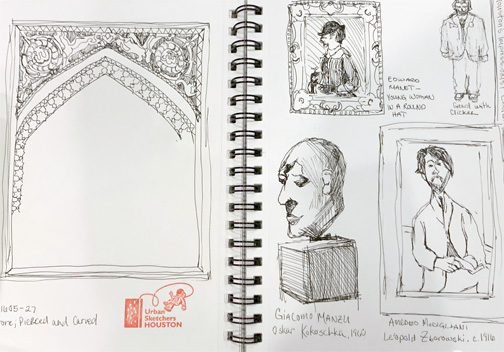 1605-27
Pierced and Carved
Urban
Sketchers
HOUSTON
EDWARD
MANET –
YOUNG WOMAN
IN A ROUND
HAT
Guard with
Clicker
GIACOMO MANZU
Oskar Kokoschka, 1960
AMEDEO MODIGLIANI
Leopold Zborowski. c. 1916